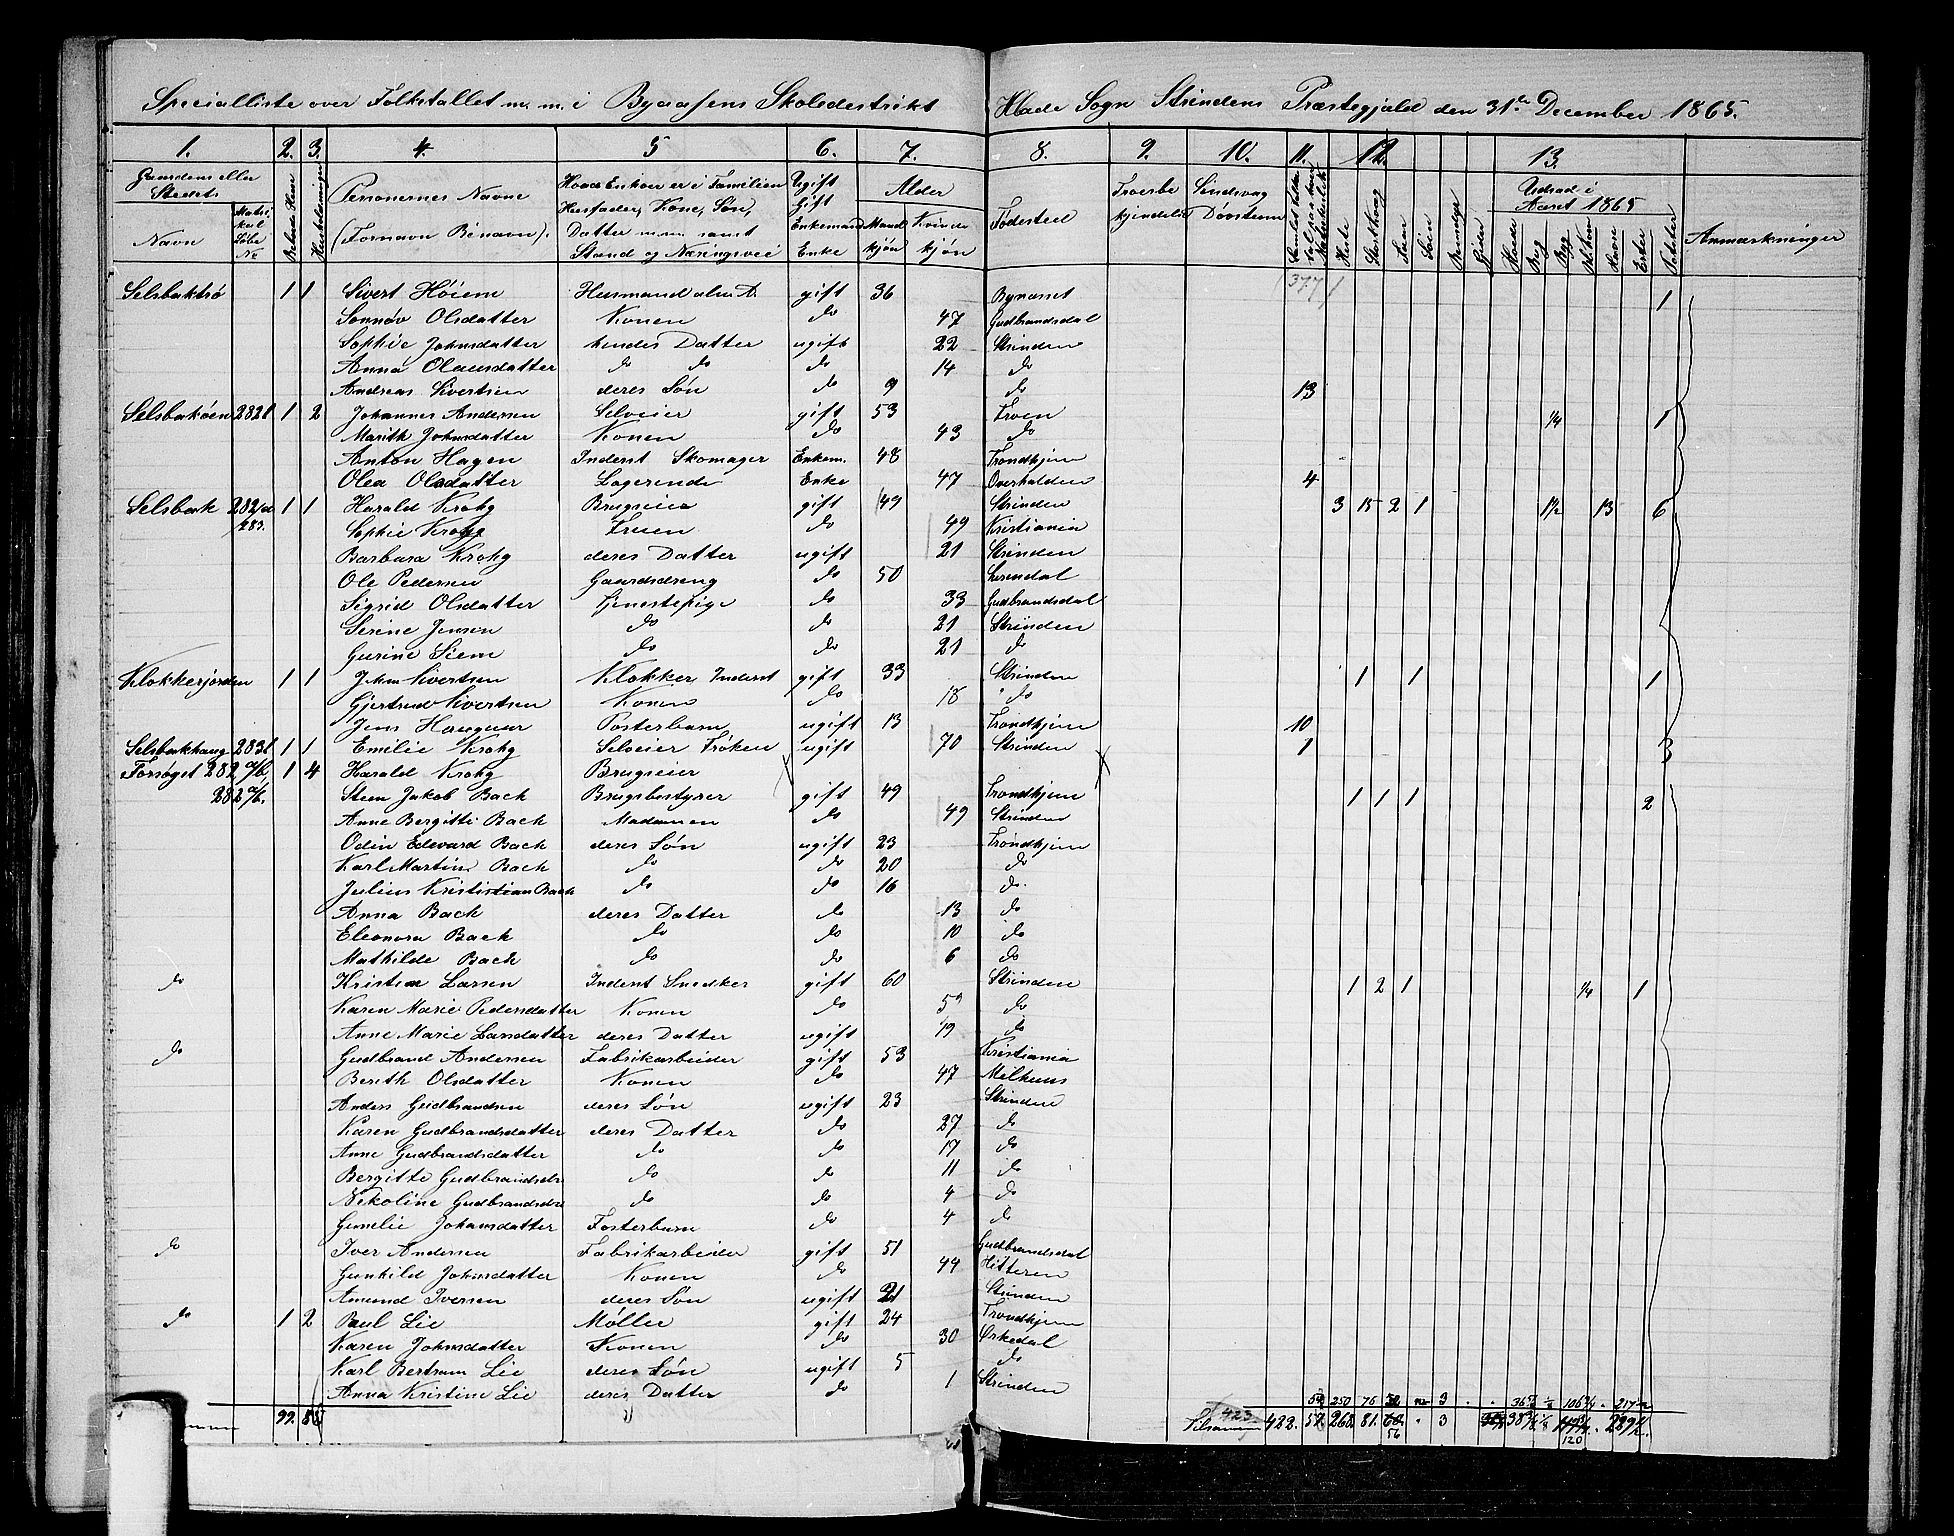 Specialliste over Folketallet m. m. i Byaasens Skoledestrikt Hlade Sogn Strindens Præstegjæld den 31te December 1865.
1. 2. 3. 4. 5 6. 7. 8. 9. 10. 11. 12. 13.
Gaardens eller Stedets Navn Matrikul Løbe No Beboede Huse Husholdninger Personernes Navne (Fornavn Binavn). Hvad Enhver er i Familien Husfader, Kone, Søn, Datter m. m. samt Stand og Næringsvei Ugift Gift Enkemand Enke Alder Mandkjøn Kvindekjøn Fødested Troesbekjendelse Sindsvag Døvstum Heste Stort Kvæg Faar Sviin Udsæd i Aaret 1865 Hvede Rug Byg Havre Erter Poteter Anmærkninger
Selsbaktrø 1 1 Sivert Høiem Husmand gift 36 Bynæsset 377 1
Sønnøv Olsdatter Konen do 47 Gudbrandsdal
Sophie Johnsdatter hendes Datter ugift 22 Strinden
Anna Olausdatter do do do 14 do
Andreas Sivertsen deres Søn do 9 do 13
Selsbakøen 282 1 2 Johannes Andersen Selveier gift 53 Froen 1/4 1
Marith Johnsdatter Konen do 43 do
Anton Hagen Inderst Skomager Enkem. 48 Trondhjem
Olea Olsdatter Logerende Enke 47 Overhalden 4
Selsbak 282 283. 1 1 Harald Krohg Brugseier gift 49 Strinden 3 15 2 1 1 1/2 13 6
Sophie Krohg Fruen do 49 Kristiania
Barbara Krohg deres Datter ugift 21 Strinden
Ole Pedersen Gaardsdreng do 50
Sigrid Olsdatter Tjenestepige do 33 Gudbrandsdal
Serine Jensen do do 21 Strinden
Gurine Siem do do 21 do
Klokkerjorden 1 1 John Sivertsen Klokker Inderst gift 33 Strinden 1 1 1
Gjertrud Sivertsen Konen do 18 do
Jens Haugum Posterbarn ugift 13 Trondhjem 10
Selsbakhaug 283 1 1 Emilie Krohg Selveier Frøken ugift 70 Strinden 1 3
Forsøget 282 a/b, 1 4 Harald Krohg Brugseier
282 a/b. Steen Jakob Bach Brugsbestyrer gift 49 Trondhjem 1 1 1 2
Anne Bergitte Bach Madamen do 49 Strinden
Odin Edevard Bach deres Søn ugift 23 Trondhjem
Karl Martin Bach do do 20 do
Julius Krististian Bach do do 16 do.
Anna Bach deres Datter do 13 do
Eleonora Bach do do 10 do
Mathilde Bach do do 6 do
do Kristen Larsen Inderst Snedker gift 60 Strinden 1 2 1 1/4 1
Karen Marie Pedersdatter Konen do 59 do
Anne Marie Larsdatter deres Datter ugift 19 do
do Gudbrand Andersen Fabrikarbeider gift 53 Kristiania
Berith Olsdatter Konen do 47 Melhuus
Anders Gudbrandsen deres Søn ugift 23 Strinden
Karen Gudbrandsdatter deres Datter do 27 do
Anne Gudbrandsdatter do do 17 do
Bergitte Gudbrandsdr do do 11 do
Nikoline Gudbrandsdr do do 4 do
Gunelie Johansdatter Fosterbarn do 4 do
do Iver Andersen Fabrikarbeider gift 51 Gudbrandsdal
Gunhild Johnsdatter Konen do 44 Hitteren
Amund Iversen deres Søn ugift 21 Strinden
do 1 2 Paul Lie Møller gift 24 Trondhjem
Karen Johnsdatter Konen do 30 Orkedal
Karl Bertram Lie deres Søn ugift 5 do
Anna Kristine Lie deres Datter do 1 Strinden
250 76 3 36 106 3/4 217
99. 88 423 Tilsammen 422. 57. 260. 81. 56 3 38 120 289